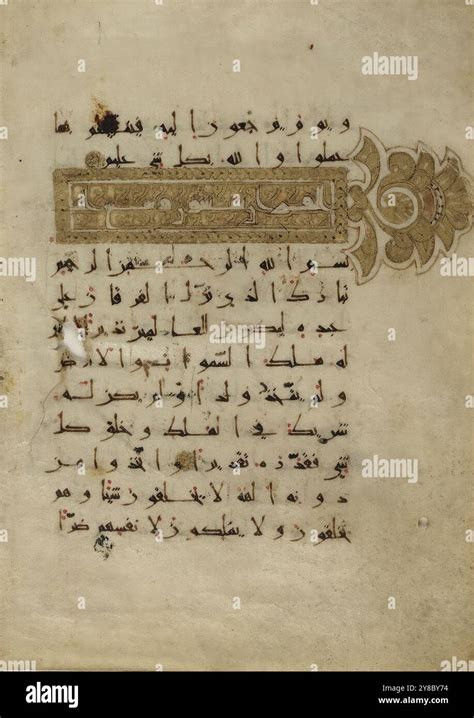 و يوم يرجعون اليه فينبئهم بما
عملوا و الله بكل شي عليم
بسم الله الرحمن الرحيم
تبارك الذي نزل الفرقان على
عبده ليكون للعالمين نذيرا
له ملك السموات و الارض
و لم يتخذ ولدا و لم يكن له
شريك في الملك و خلق كل
شي فقدره تقديرا و اتخذوا من
دونه الهة لا يخلقون شيا و هم
يخلقون و لا يملكون لانفسهم ضرا
alamy
Image ID: 2Y8BY74
www.alamy.com